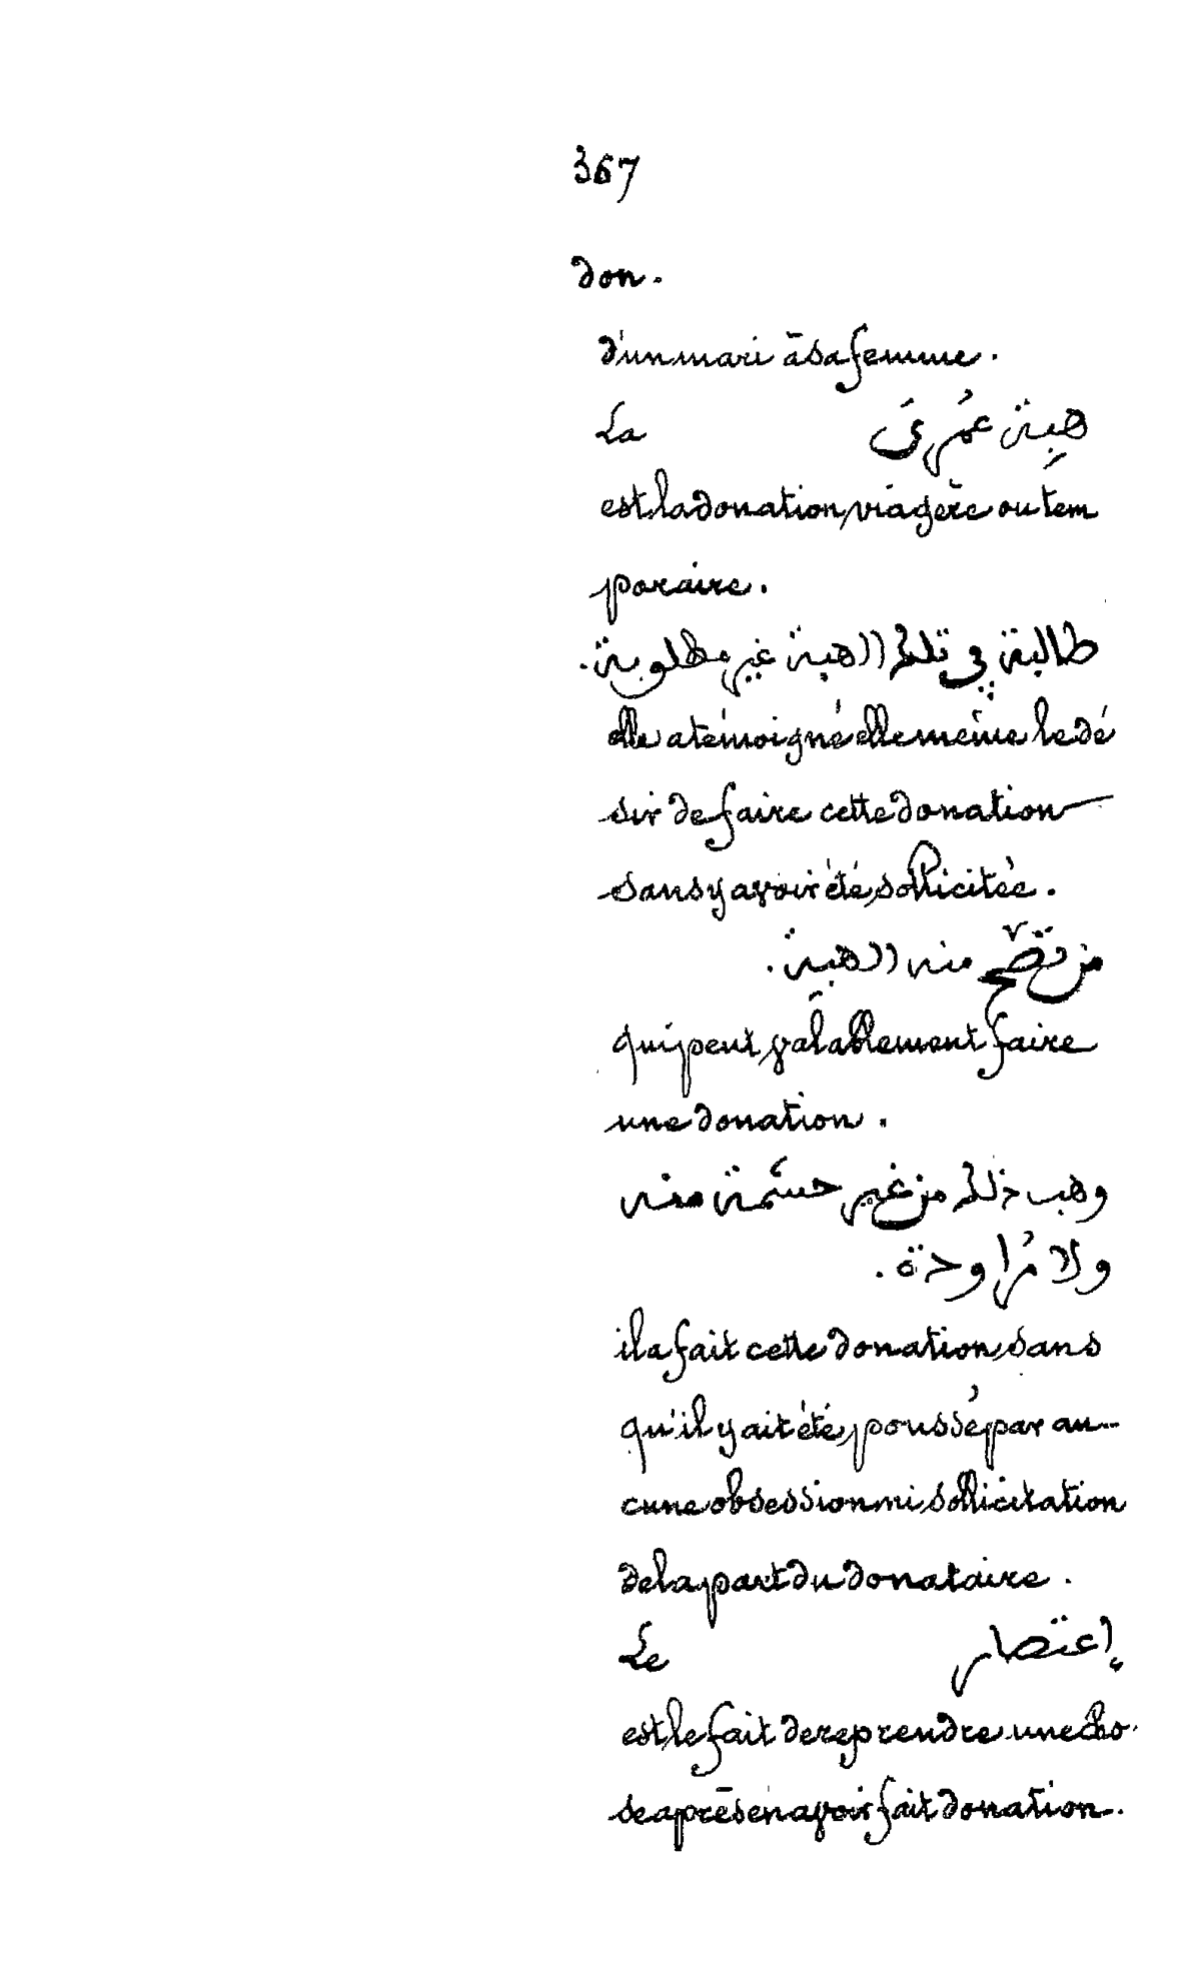 367
don.
d'un mari à sa femme.
La هِبة عُمرَى
est la donation viagère ou tem
poraire.
طالبة في تلك الهبة غير مطلوبة.
elle a témoigné elle même le dé
sir de faire cette donation
sans y avoir été sollicitée.
من تصّح منه الهبة.
qui peut valablement faire
une donation.
وهب ذلك من غير حشمة منه
ولا مُراودة.
il a fait cette donation sans
qu'il y ait été poussé par au-
cune obsession ni sollicitation
de la part du donataire.
Le إعتصار
est le fait de reprendre une cho
se après en avoir fait donation.